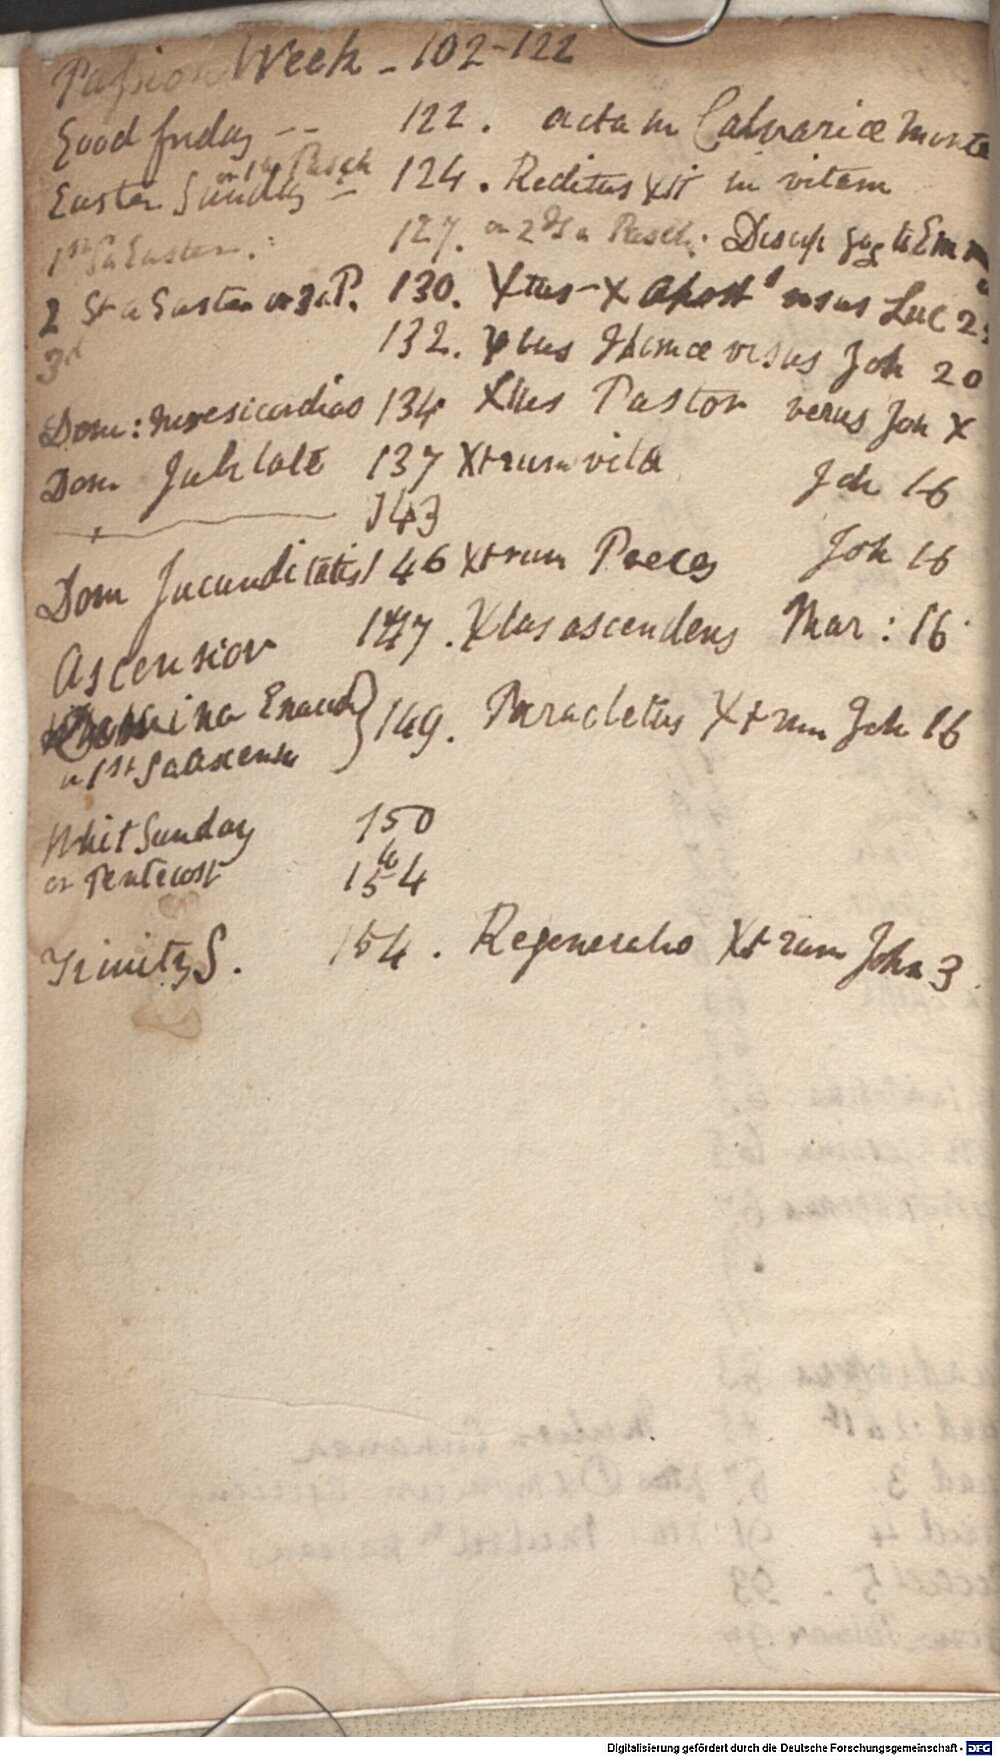 Passion Week - 102-122
Good friday -- 122. acta in Calvariæ Monte
or 1st Pasch
Easter Sunday - 124. Reditus Xti in vitam
1st S a Easter.: 127. or 2d S a Pasch. Discip gog to Emm
2 S a Easter or 3 a P. 130. Xtus X Apost visus Luc 2
3d 132. Xtus Thomæ visus Joh 20
Dom: Miresicordias 134 Xtus Pastor verus Joh X
Dom Jubilate 137 Xtrum vita Joh 16
143
Dom Jucunditatis 146 Xtrum Preces Joh 16
Ascension 147. Xtus ascendens Mar: 16
Exaudi 149. Paracletus Xtrum Joh 16
or 1st S a Ascens
Whit Sunday 150
or Pentecost 154
Trinity S. 154. Regeneratio Xtrum John 3
Digitalisierung gefördert durch die Deutsche Forschungsgemeinschaft - DFG